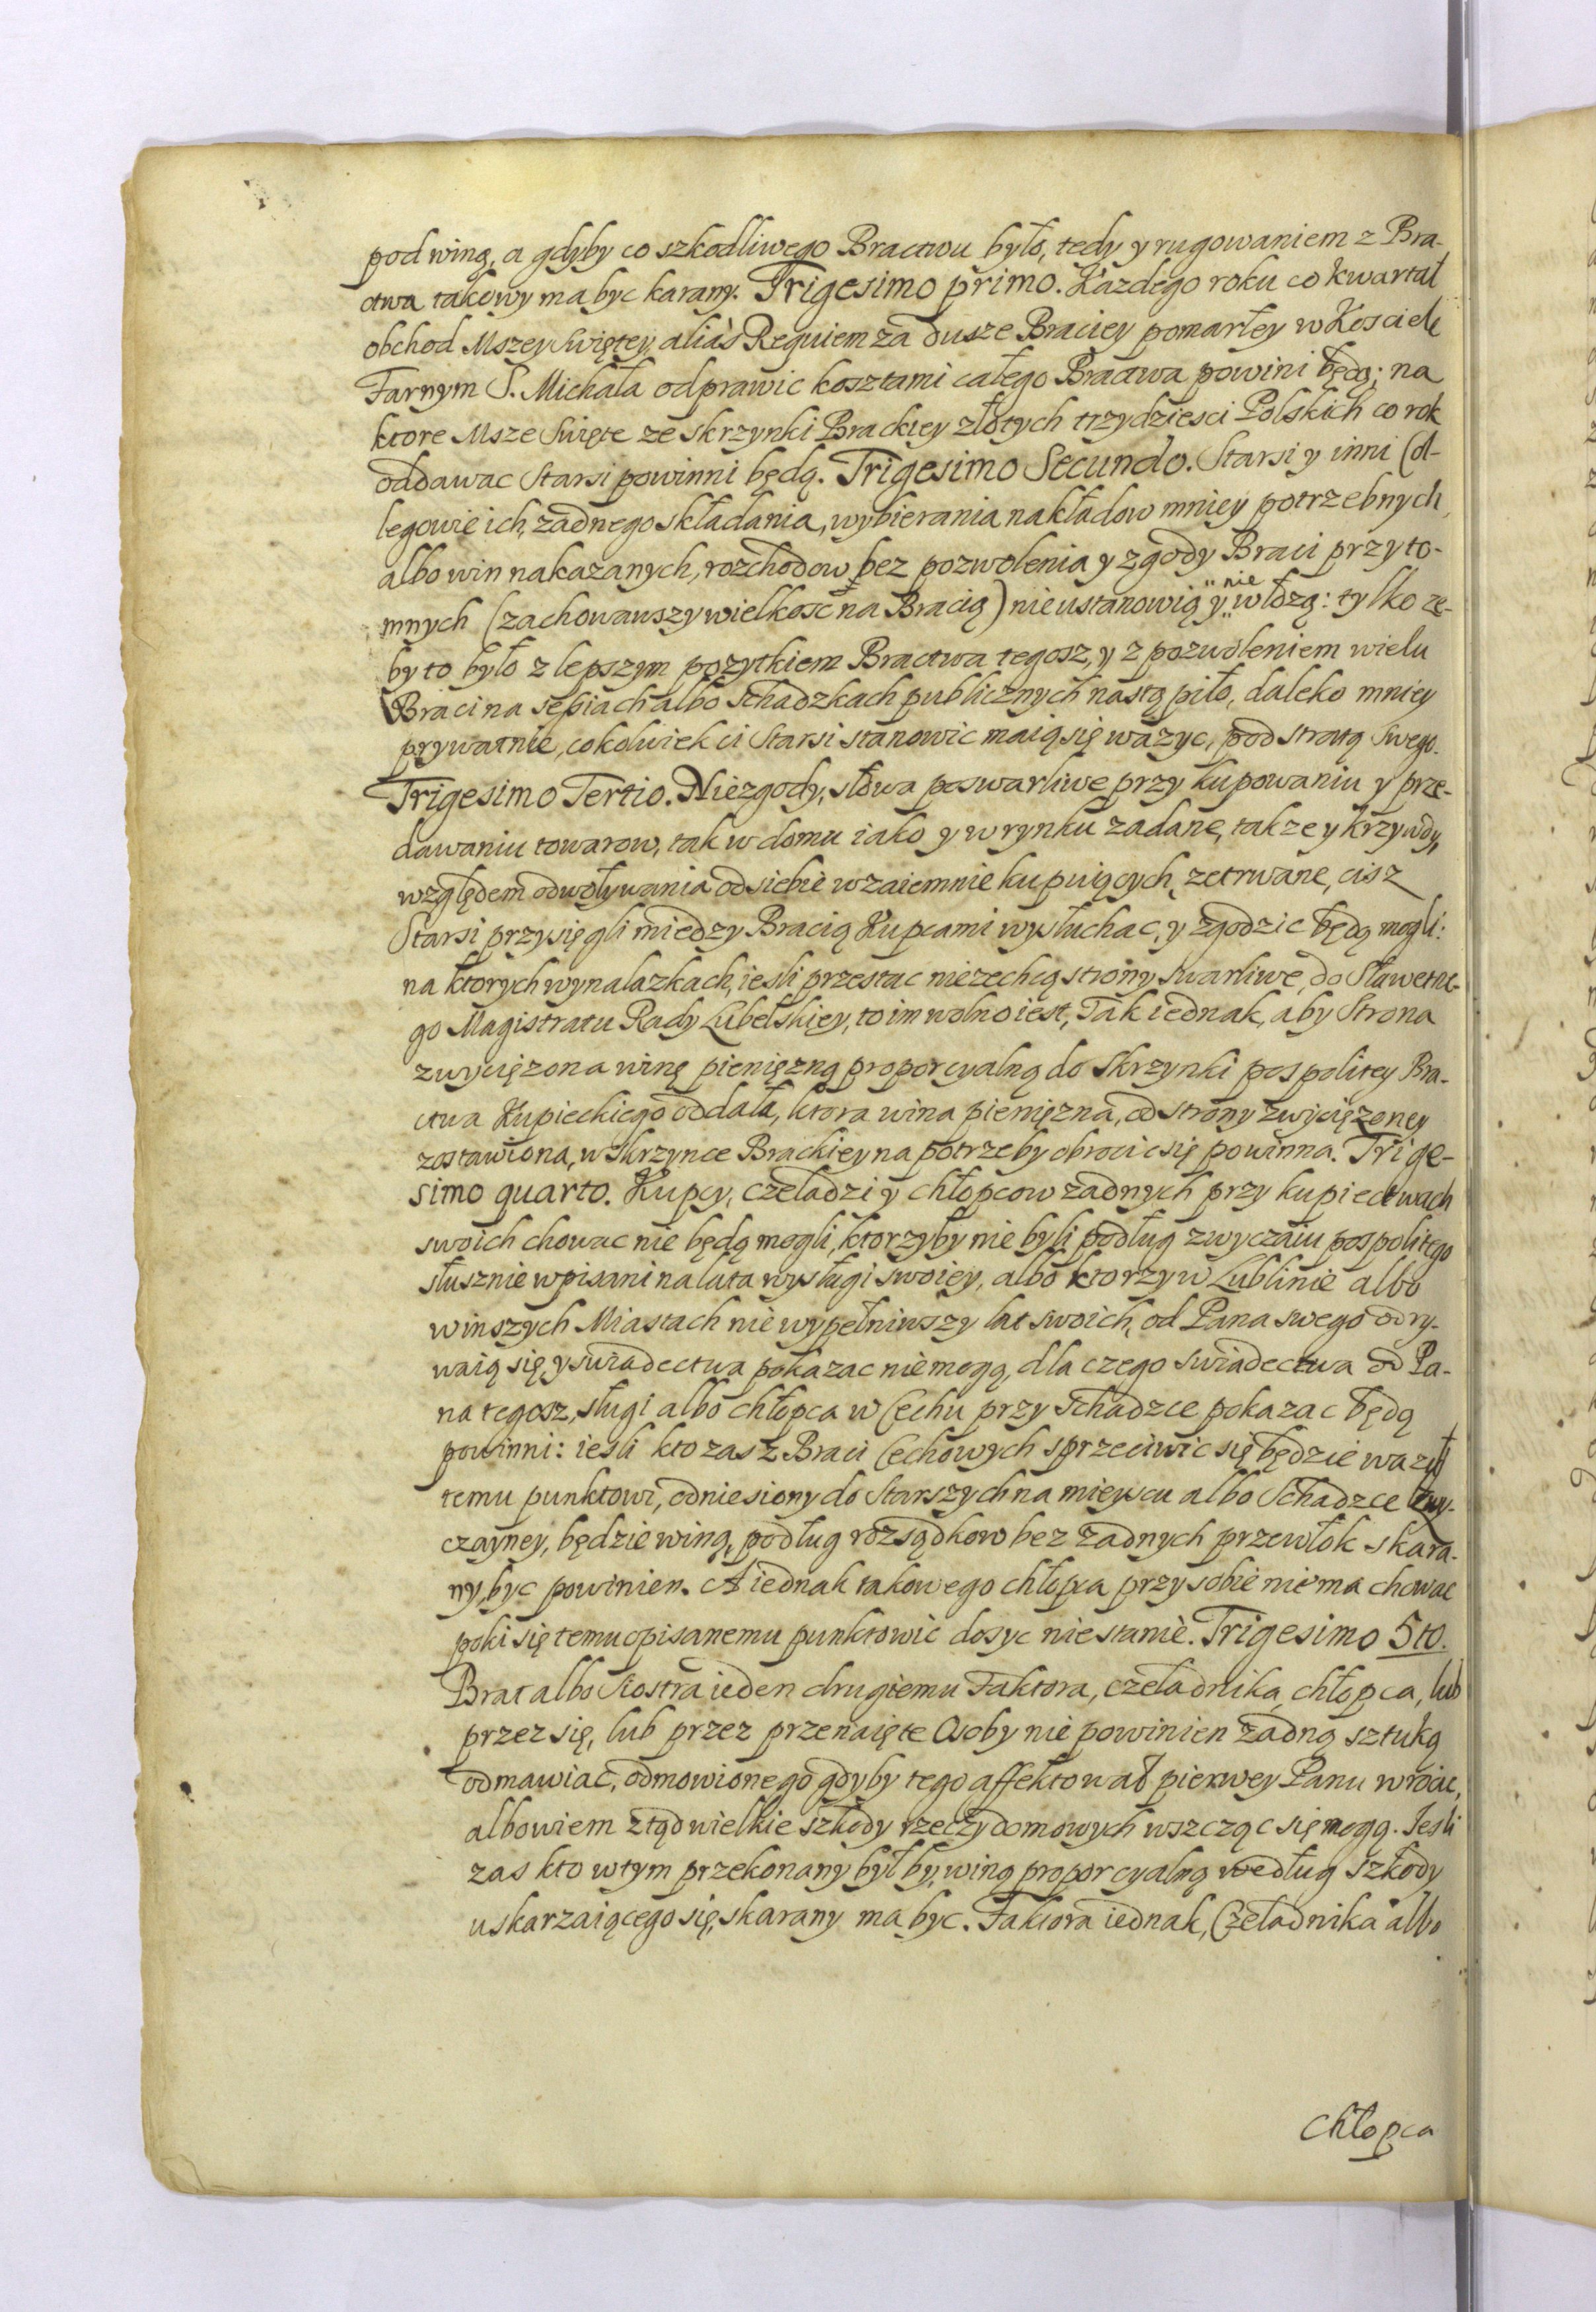 pod winą, a gdyby co szkodliwego Bractwu było, tedy y rugowaniem z Bra-
ctwa takowy ma byc karany. Trigesimo primo. Kazdego roku co kwartał
obchod Mszey Swiętey, aliàs Requiem za dusze Braciey pomarłey w Kosciele
Farnym S. Michała odprawic kosztami całego Bractwa powini będą; na
ktore Msze Swięte ze skrzynki Brackiey złotych trzydziesci Polskich co rok
oddawac Starsi powinni będą. Trigesimo Secundo. Starsi y inni Col-
legowie ich, zadnego składania, wybierania nakładow mniey potrzebnych
albo win nakazanych, rozchodow bez pozwolenia y zgody Braci przyto-
mnych (zachowawszy wielkosc na Bracią) nie ustanowią y nie włozą: tylko ze-
by to było z lepszym pozytkiem Bractwa tegosz, y z pozwoleniem wielu
Braci na sesiach albo schadzkach publicznych nastąpiło, daleko mniey
prywatnie, cokolwiek ci Starsi stanowic maią się wazyc, pod stratą swego.
Trigesimo Tertio. Niezgody, słowa poswarliwe przy kupowaniu y prze-
dawaniu towarow, tak w domu iako y w rynku zadane, takze y krzywdy,
względem odwoływania od siebie wzaiemnie kupuiących, zetrwane, cisz
Starsi przysięgli miedzy Bracią Kupcami wysłuchac, y zgodzic będą mogli:
na ktorych wynalazkach, iesli przestac niezechcą strony swarliwe, do Sławetne-
go Magistratu Rady Lubelskiey, to im wolno iest, Tak iednak, aby Strona
zwyciężona winę pienięzną proporcyalną do skrzynki pospolitey Bra-
ctwa Kupieckiego oddała, ktora wina pienięzna, od strony zwycięzoney
zostawiona, w skrzynce Brackiey na potrzeby obrocic się powinna. Trige-
simo quarto. Kupcy, czeladzi y chłopcow zadnych przy kupiectwach
swoich chowac nie będą mogli, ktorzyby nie byli podług zwyczaiu pospolitego
słusznie wpisani na lata wysługi swoiey, albo ktorzy w Lublinie albo
winszych Miastach nie wypełniwszy lat swoich, od Pana swego odry-
waią się, y swiadectwa pokazac niemogą, dla czego swiadectwa od Pa-
na tegosz, sługi albo chłopca w Cechu przy Schadzce pokazac będą
powinni: iesli kto zas z Braci Cechowych sprzeciwic się będzie wazył
temu punktowi, odniesiony do Starszych na mieyscu albo Schadzce zwy-
czayney, będzie winą, podług rozsądkow bez zadnych przewłok skara-
ny, byc powinien. A iednak takowego chłopca przy sobie niema chowac
poki się temu opisanemu punktowie dosyc niestanie. Trigesimo 5to.
Brat albo Siostra ieden drugiemu Faktora, czeladnika, chłopca, lub
przez się, lub przez przenaięte Osoby nie powinien zadną sztuką
odmawiac, odmowionego gdyby tego affektował pierwey Panu wrocic,
albowiem ztąd wielkie szkody rzeczy domowych wszcząc się mogą. Iesli
zas kto wtym przekonany był by, winą proporcyalną według szkody
uskarzaiącego się, skarany ma byc. Faktora iednak, Czeladnika albo
Chłopca